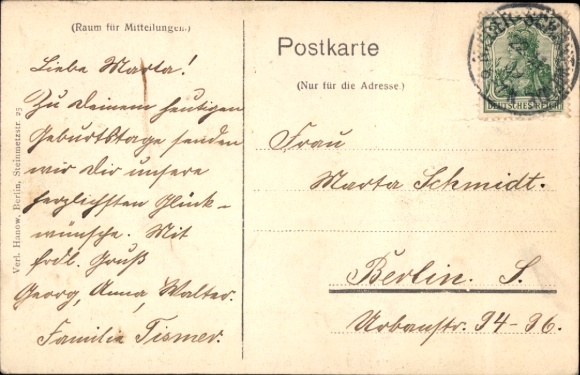 (Raum für Mitteilungen.)
Liebe Marta!
Zu Deinem heutigen
Geburtstage senden
wir Dir unsere
herzlichsten Glück-
wünsche. Mit
frdl. Gruß
Georg, Anna, Walter.
Familie Tismer.
Verl. Hanow, Berlin, Steinmetzstr. 25
Postkarte
(Nur für die Adresse.)
DEUTSCHES REICH
Frau
Marta Schmidt.
Berlin. S.
Urbanstr. 94-96.